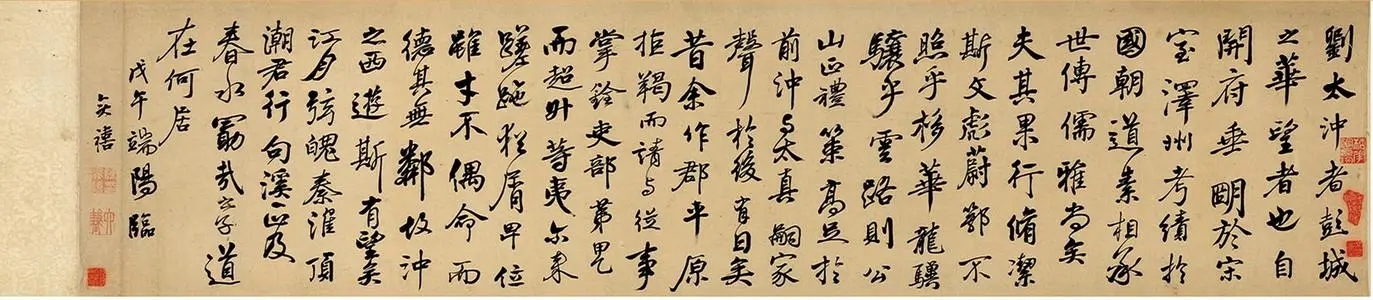 劉太沖者彭城
之華望者也自
開府垂朙於宋
室澤州考績於
國朝道素相承
世傳儒雅尚矣
夫其果行脩潔
斯文彪蔚鄂不
照乎栘華龍驥
驤乎雲路則公
山正禮策高足於
前沖与太真嗣家
聲於後有日矣
昔余作郡平原
拒羯而請与從事
掌銓吏部第甲
而超升等夷尔來
蹉跎猶屑卑位
雖才不偶命而
德其無鄰故沖
之西遊斯有望矣
江月弦魄秦淮頂
潮君行句溪正及
春水勖哉之子道
在何居
戊午端陽臨
奕禧